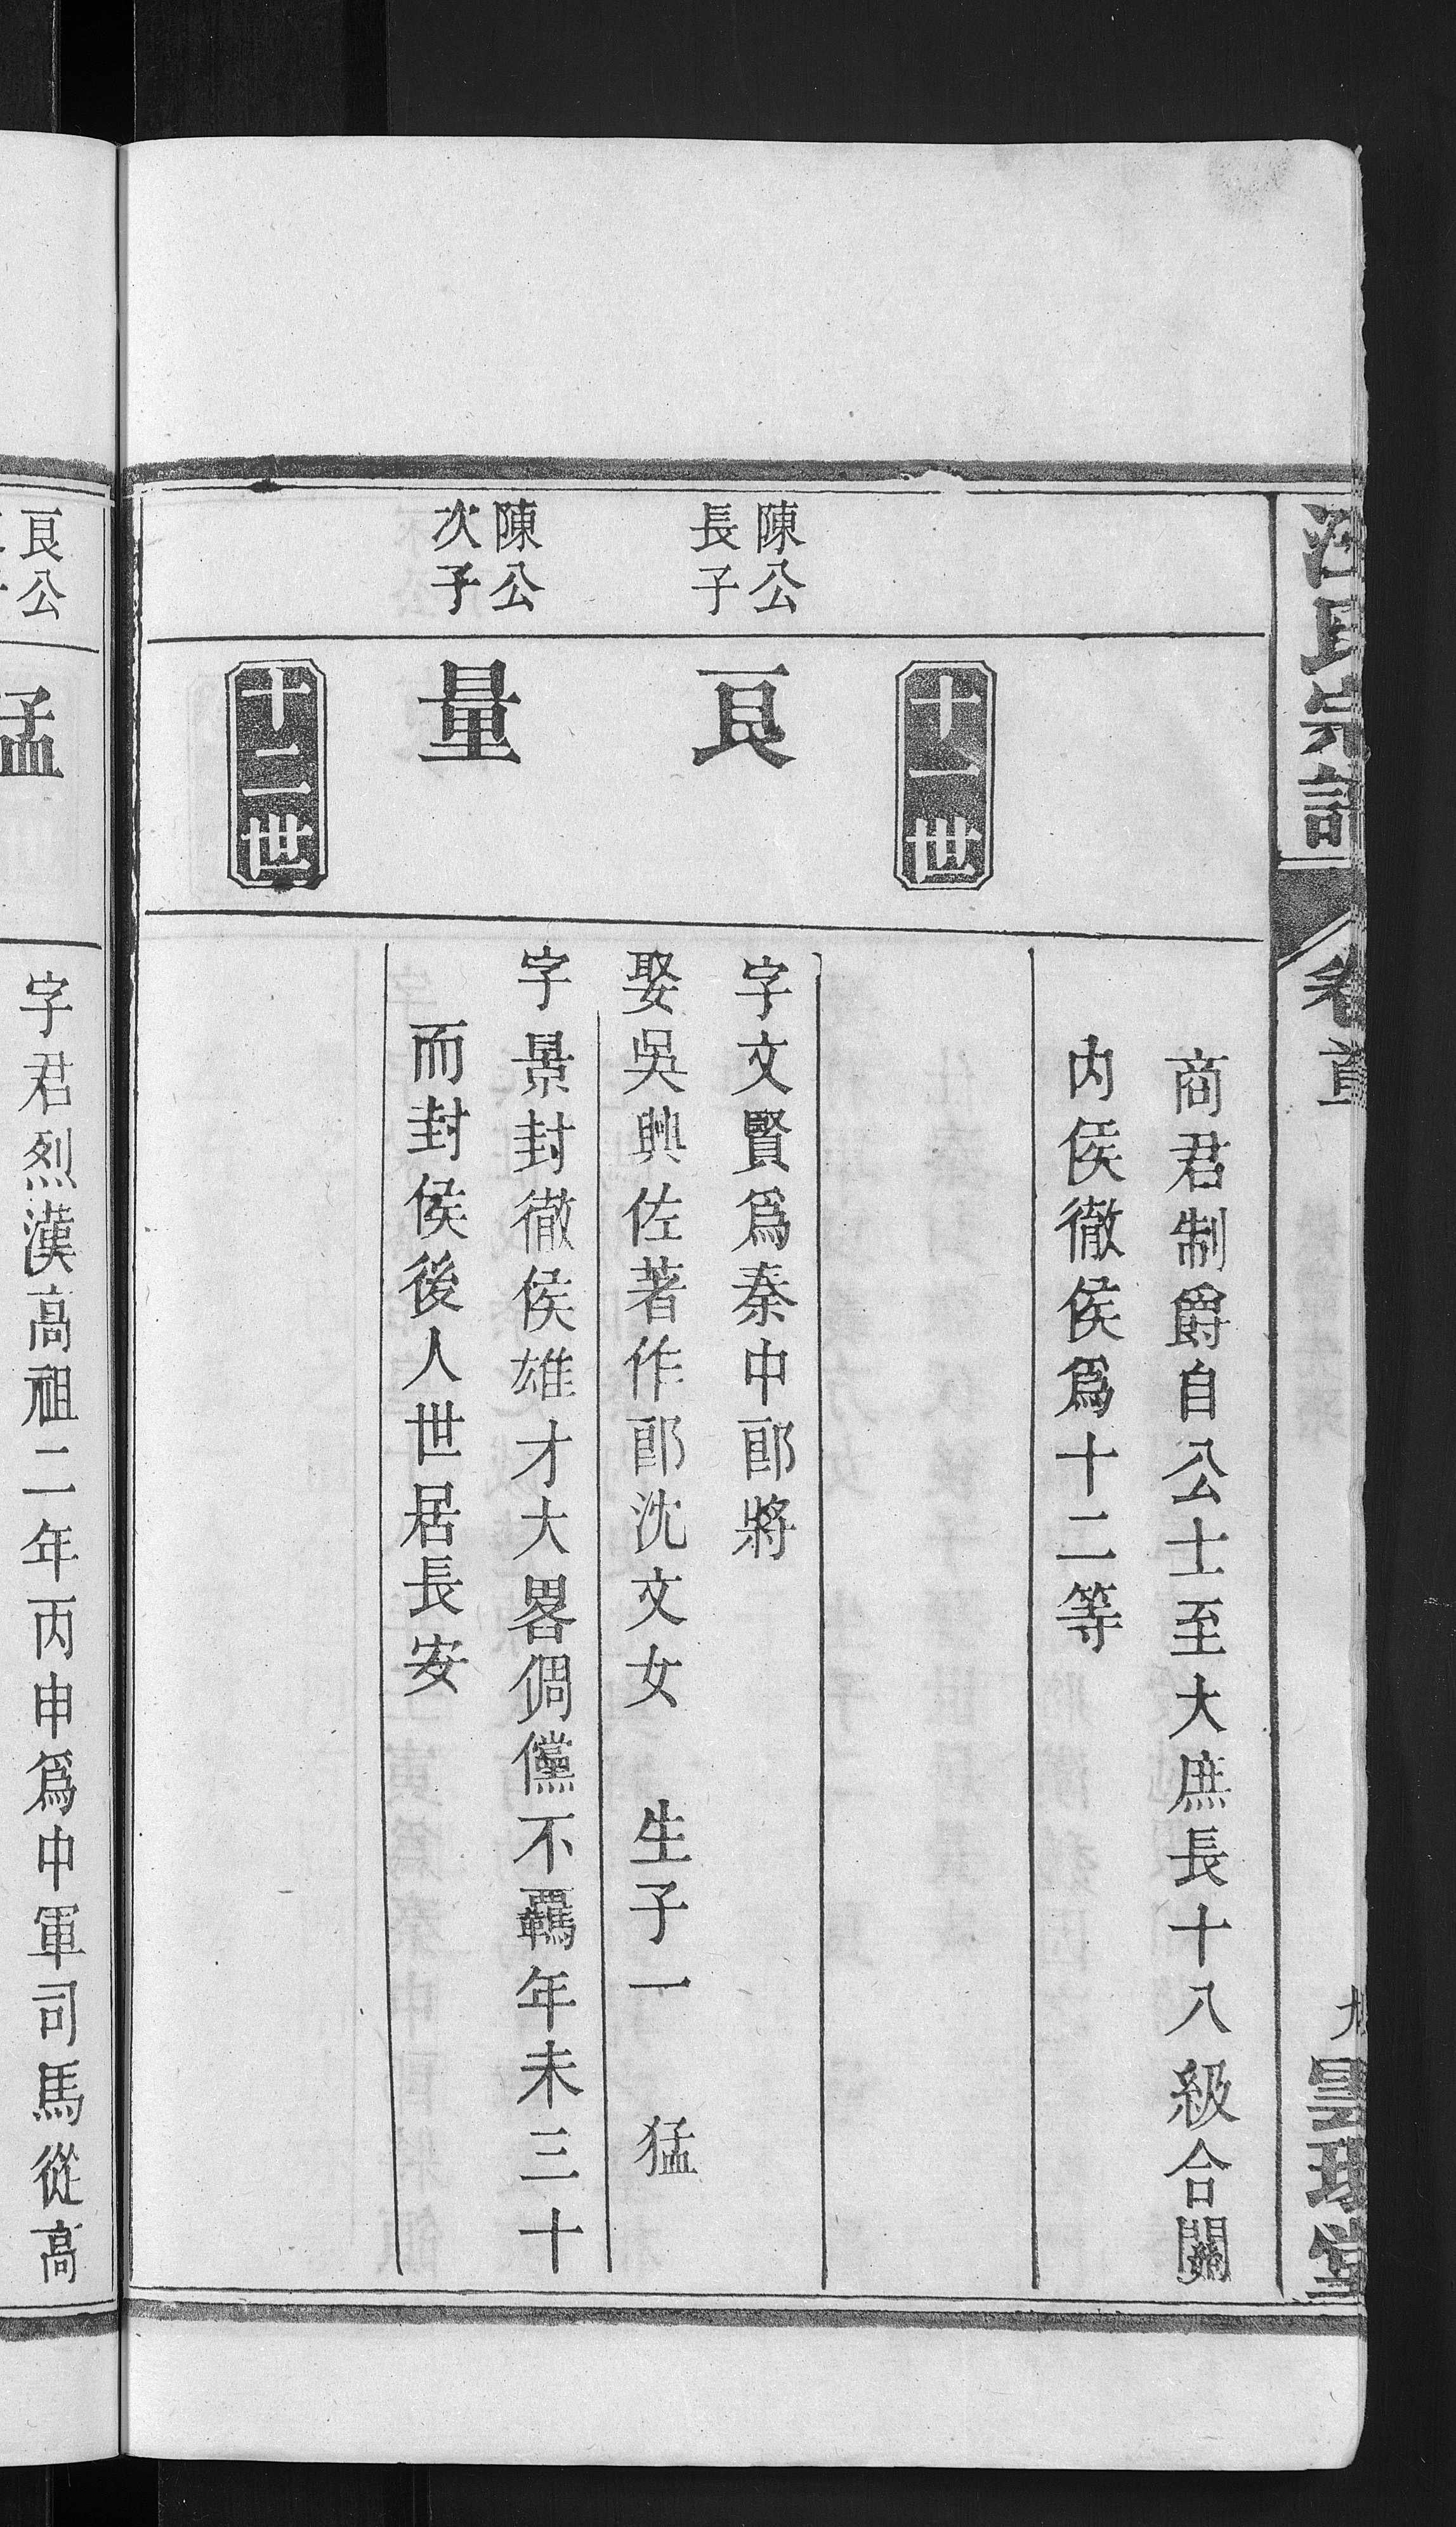 汪氏宗譜
卷首
商君制爵自公士至大庶長十八級合關
内侯徹侯爲十二等
十一世
陳公
長子
艮
字文賢爲秦中郎將
娶吳興佐著作郎沈文女 生子一 猛
陳公
次子
量
字景封徹侯雄才大畧倜儻不羈年未三十
而封侯後人世居長安
十二世
艮公
猛
字君烈漢高祖二年丙申爲中軍司馬從高